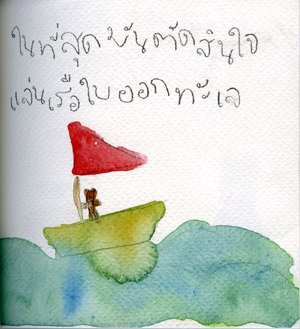 ในที่สุดมันตัดสินใจ
แล่นเรือใบออกทะเล